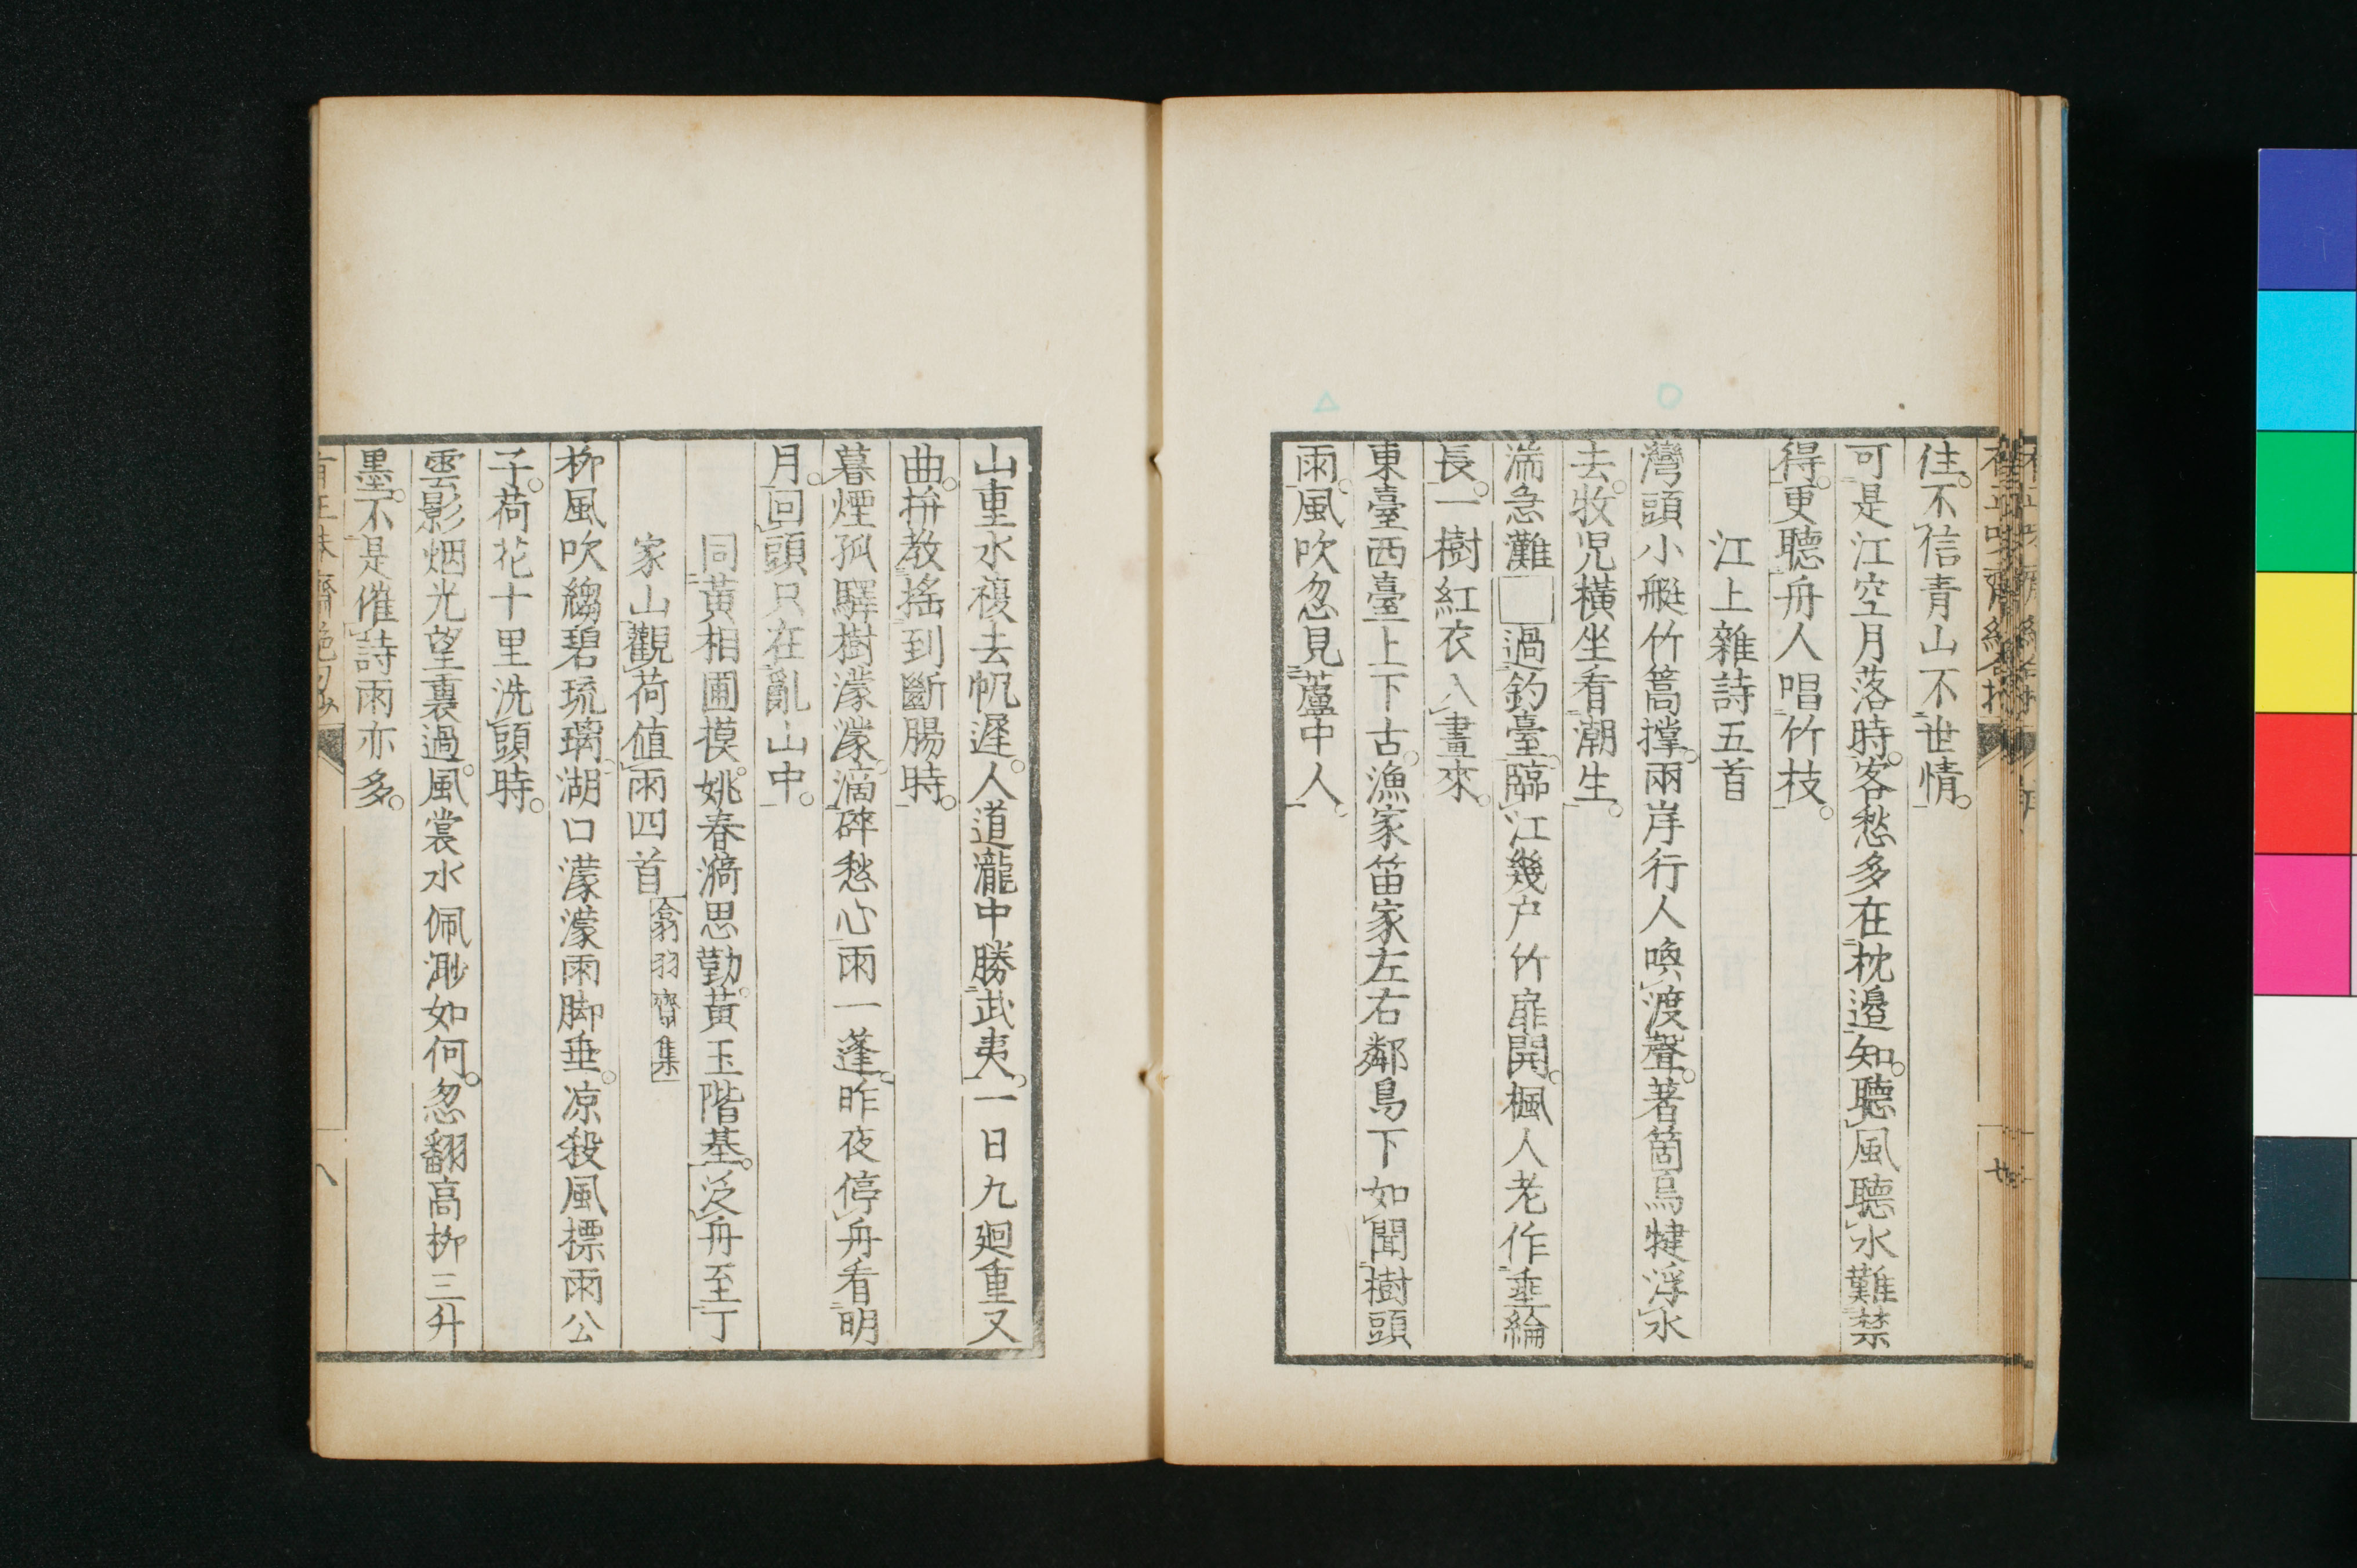 住。不信青山不世情。
可是江空月落時。客愁多在枕邊知。聽風聽水難禁
得。更聽舟人唱竹枝。
江上雜詩五首
灣頭小艇竹篙撑。兩岸行人喚渡聲。著箇烏犍浮水
去。牧児橫坐看潮生。
湍急灘□過釣臺。臨江幾户竹扉開。楓人老作垂綸
長。一樹紅衣入畫來。
東臺西臺上下古。漁家笛家左右鄰。鳥下如聞樹頭
雨。風吹忽見蘆中人。
山重水複去帆遲。人道瀧中勝武夷。一日九廻重又
曲。拚教搖到斷腸時。
暮煙孤驛樹濛濛。滴碎愁心雨一蓬。昨夜停舟看明
月。回頭只在亂山中。
同黃相圃模。姚春漪思勤。黃玉階基。泛舟至丁
家山觀荷值雨四首 翕羽齋集
柳風吹縐碧琉璃。湖口濛濛雨脚垂。凉殺風標雨公
子。荷花十里洗頭時。
雲影烟光望裏過。風裳水佩渺如何。忽翻高柳三升
墨。不是催詩雨亦多。
八